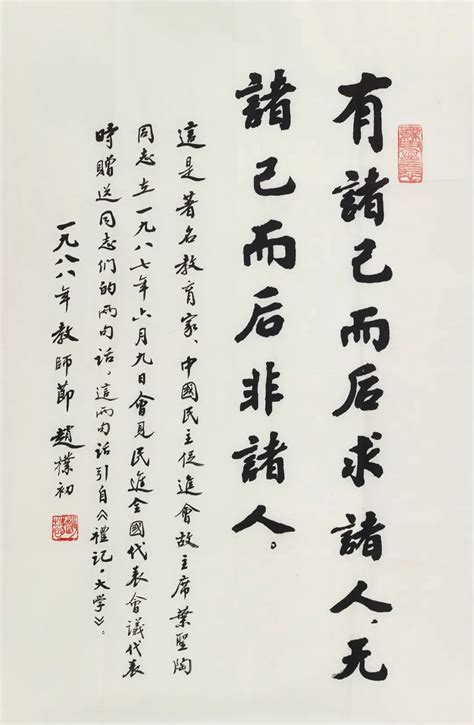 有諸己而后求諸人，无
諸己而后非諸人。
這是著名教育家、中國民主促進會故主席葉聖陶
同志在一九八七年六月九日會見民進全國代表會議代表
時贈送同志们的兩句話。這兩句話引自《禮記·大学》。
一九八八年教師節 趙樸初